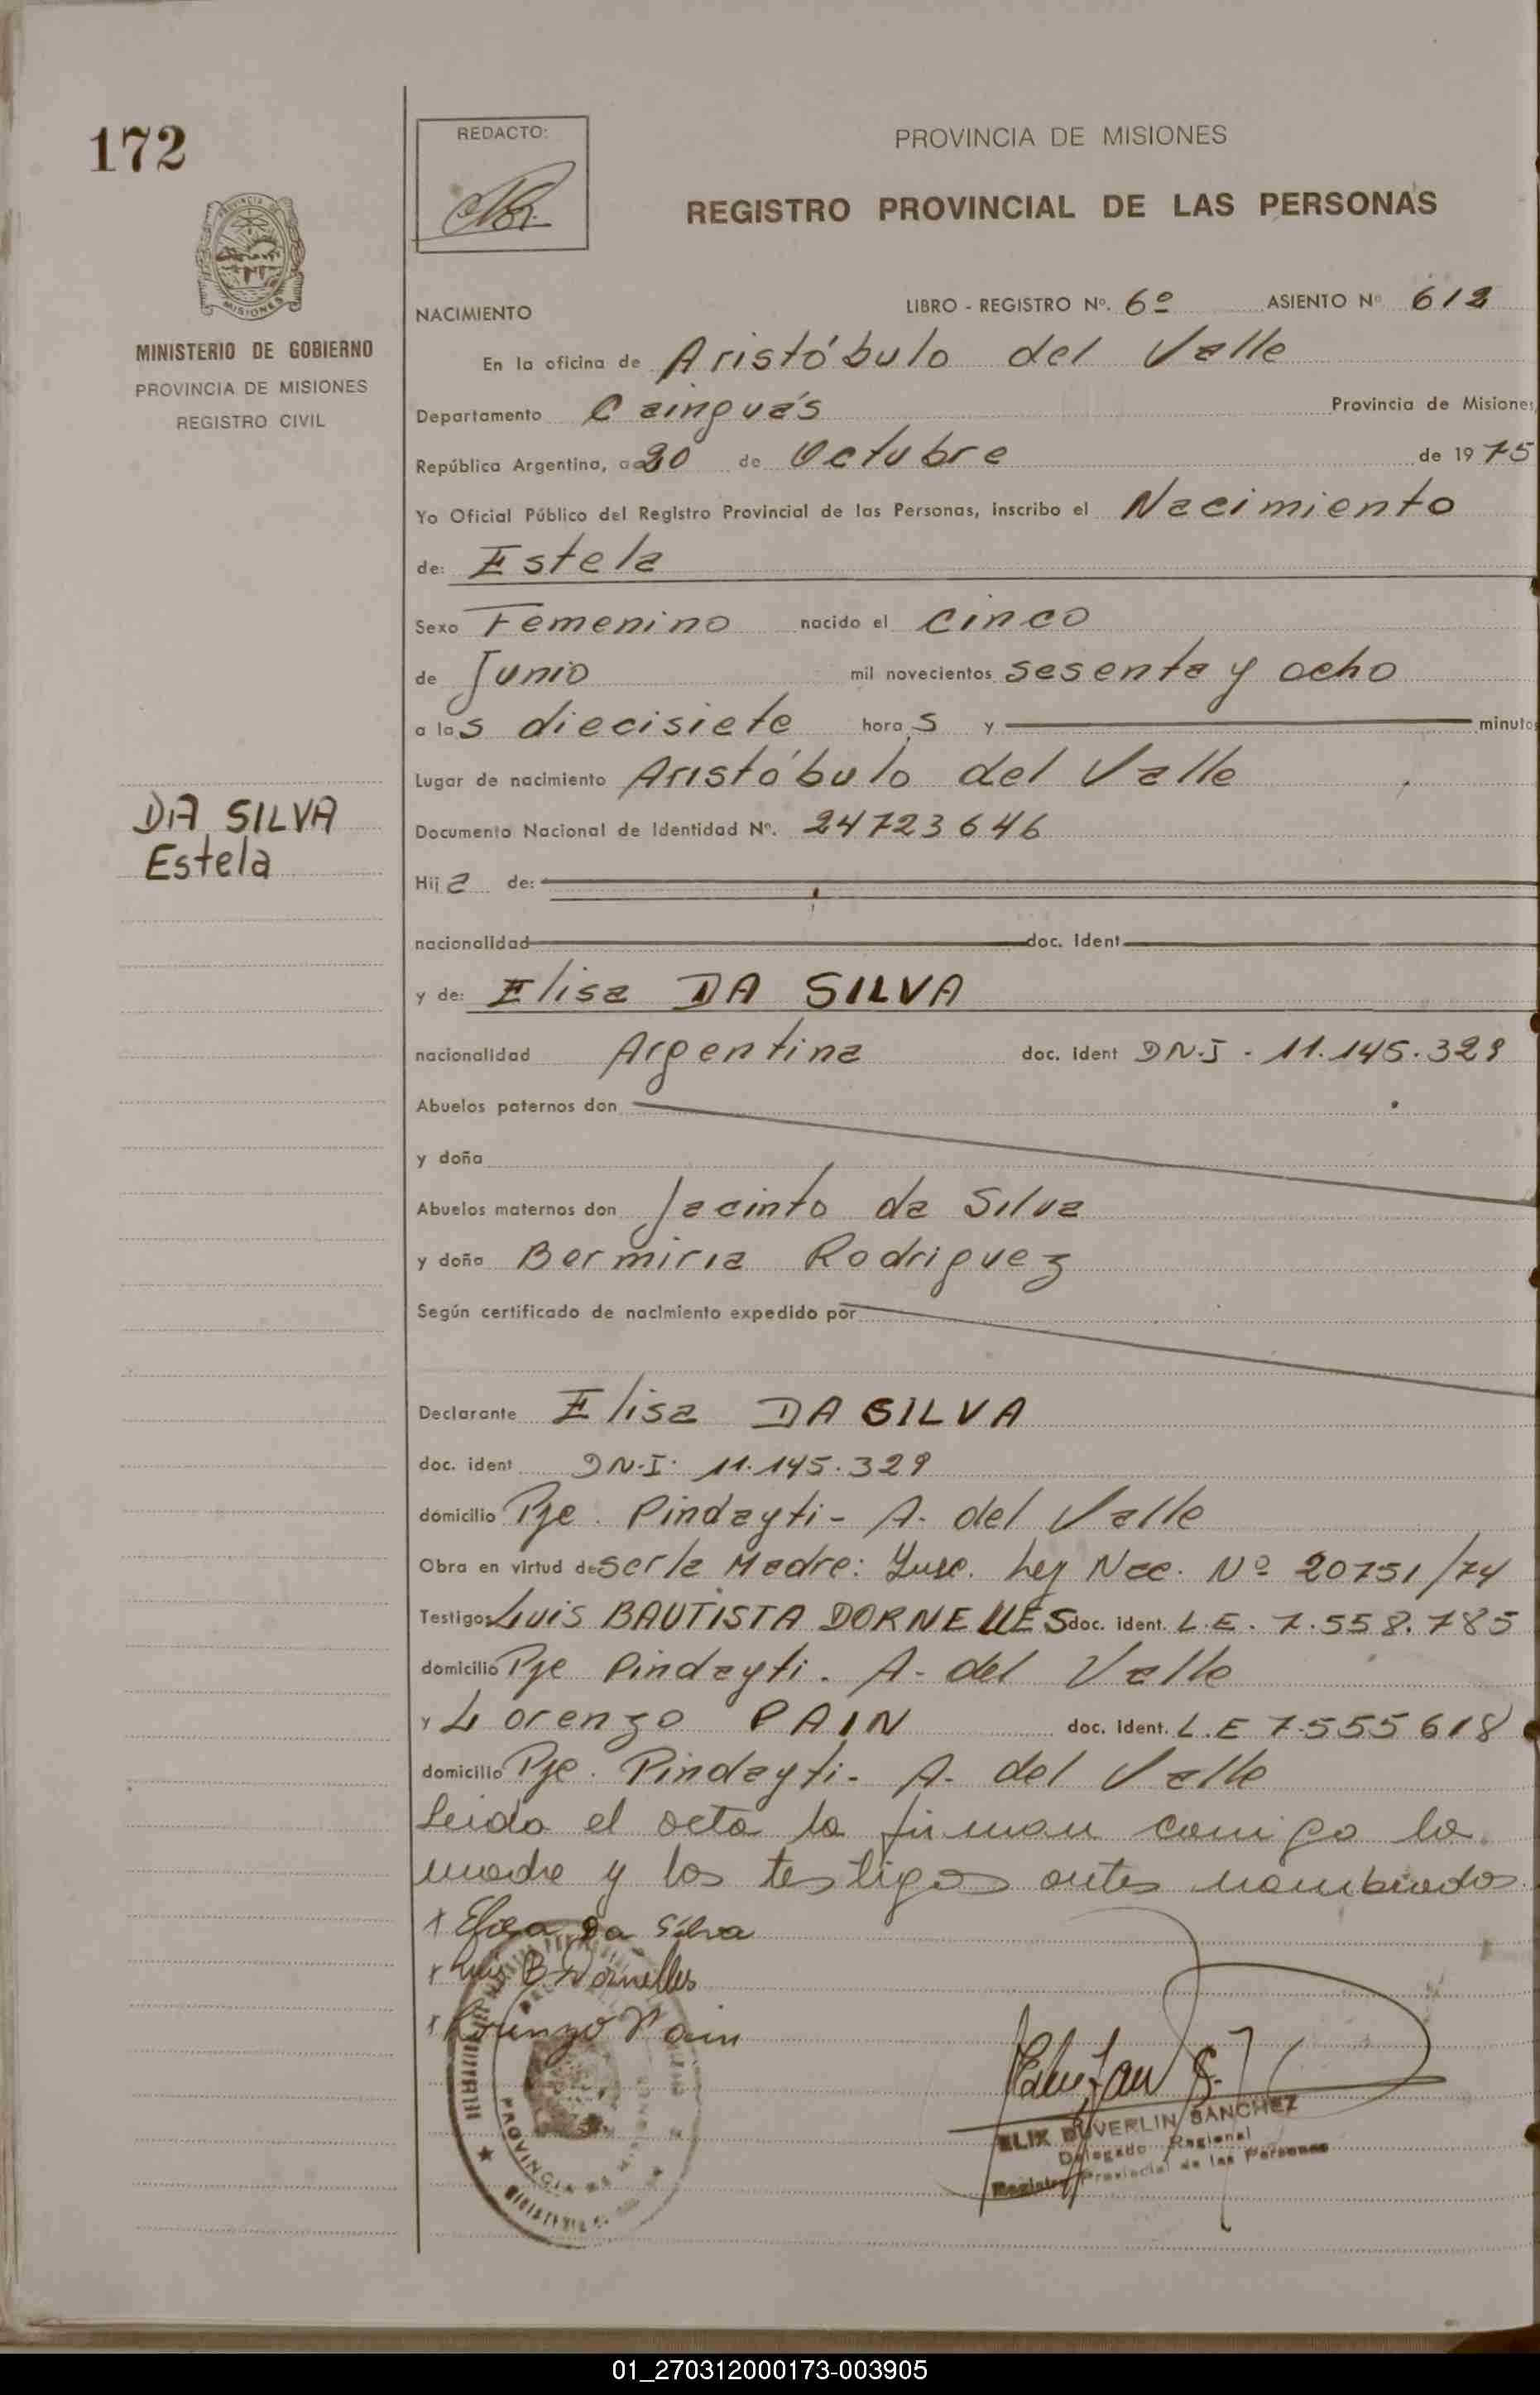 172
REDACTO:
PROVINCIA DE MISIONES
REGISTRO PROVINCIAL DE LAS PERSONAS
PROVINCIA DE
MISIONES
MINISTERIO DE GOBIERNO
PROVINCIA DE MISIONES
REGISTRO CIVIL
NACIMIENTO LIBRO - REGISTRO Nº. 6º ASIENTO Nº 612
En la oficina de Aristóbulo del Valle
Departamento Cainguás Provincia de Misiones,
República Argentina, a 20 de Octubre de 1975
Yo Oficial Público del Registro Provincial de las Personas, inscribo el Nacimiento
de: Estela
Sexo Femenino nacido el cinco
de Junio mil novecientos sesenta y ocho
a las diecisiete horas y minutos
Lugar de nacimiento Aristóbulo del Valle
DA SILVA
Estela
Documento Nacional de Identidad Nº. 24723646
Hija de:
nacionalidad doc. Ident
y de: Elisa DA SILVA
nacionalidad Argentina doc. ident DN.I - 11.145.329
Abuelos paternos don
y doña
Abuelos maternos don Jacinto da Silva
y doña Bermiria Rodriguez
Según certificado de nacimiento expedido por
Declarante Elisa DA SILVA
doc. ident DN.I. 11.145.329
domicilio Pje. Pindayti - A. del Valle
Obra en virtud de ser la Madre: Ley Nac. Nº 20751/74
Testigos Luis BAUTISTA DORNELLES doc. ident. L.E. 7.558.785
domicilio Pje Pindayti. A. del Valle
y Lorenzo PAIN doc. Ident. L.E 7.555618
domicilio Pje. Pindayti - A. del Valle
Leida el acta la firman conmigo la
madre y los testigos antes nombrados.
x Elisa Da Silva
x Luis B. Dornelles
x Lorenzo Pain
PROVINCIA DE
ELIX DUVERLIN SANCHEZ
Delegado Regional
Registro Provincial de las Personas
01_270312000173-003905